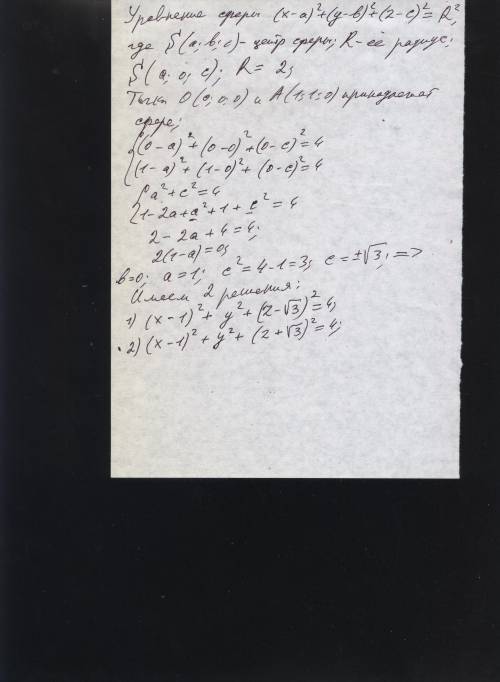 Уравнение сферы (x-a)²+(y-b)²+(z-c)²=R²,
где S(a;b;c)- центр сферы; R- её радиус;
S(a; o; c); R=2;
Точки O(0;0;0) и A(1;1;0) принадлежат
сфере;
{(0-a)²+(0-0)²+(0-c)²=4
(1-a)²+(1-0)²+(0-c)²=4
{a²+c²=4
1-2a+a²+1+c²=4
2-2a+4=4;
2(1-a)=0;
b=0; a=1; c²=4-1=3; c=±√3; =>
Имеем 2 решения:
1) (x-1)²+y²+(z-√3)²=4;
2) (x-1)²+y²+(z+√3)²=4;